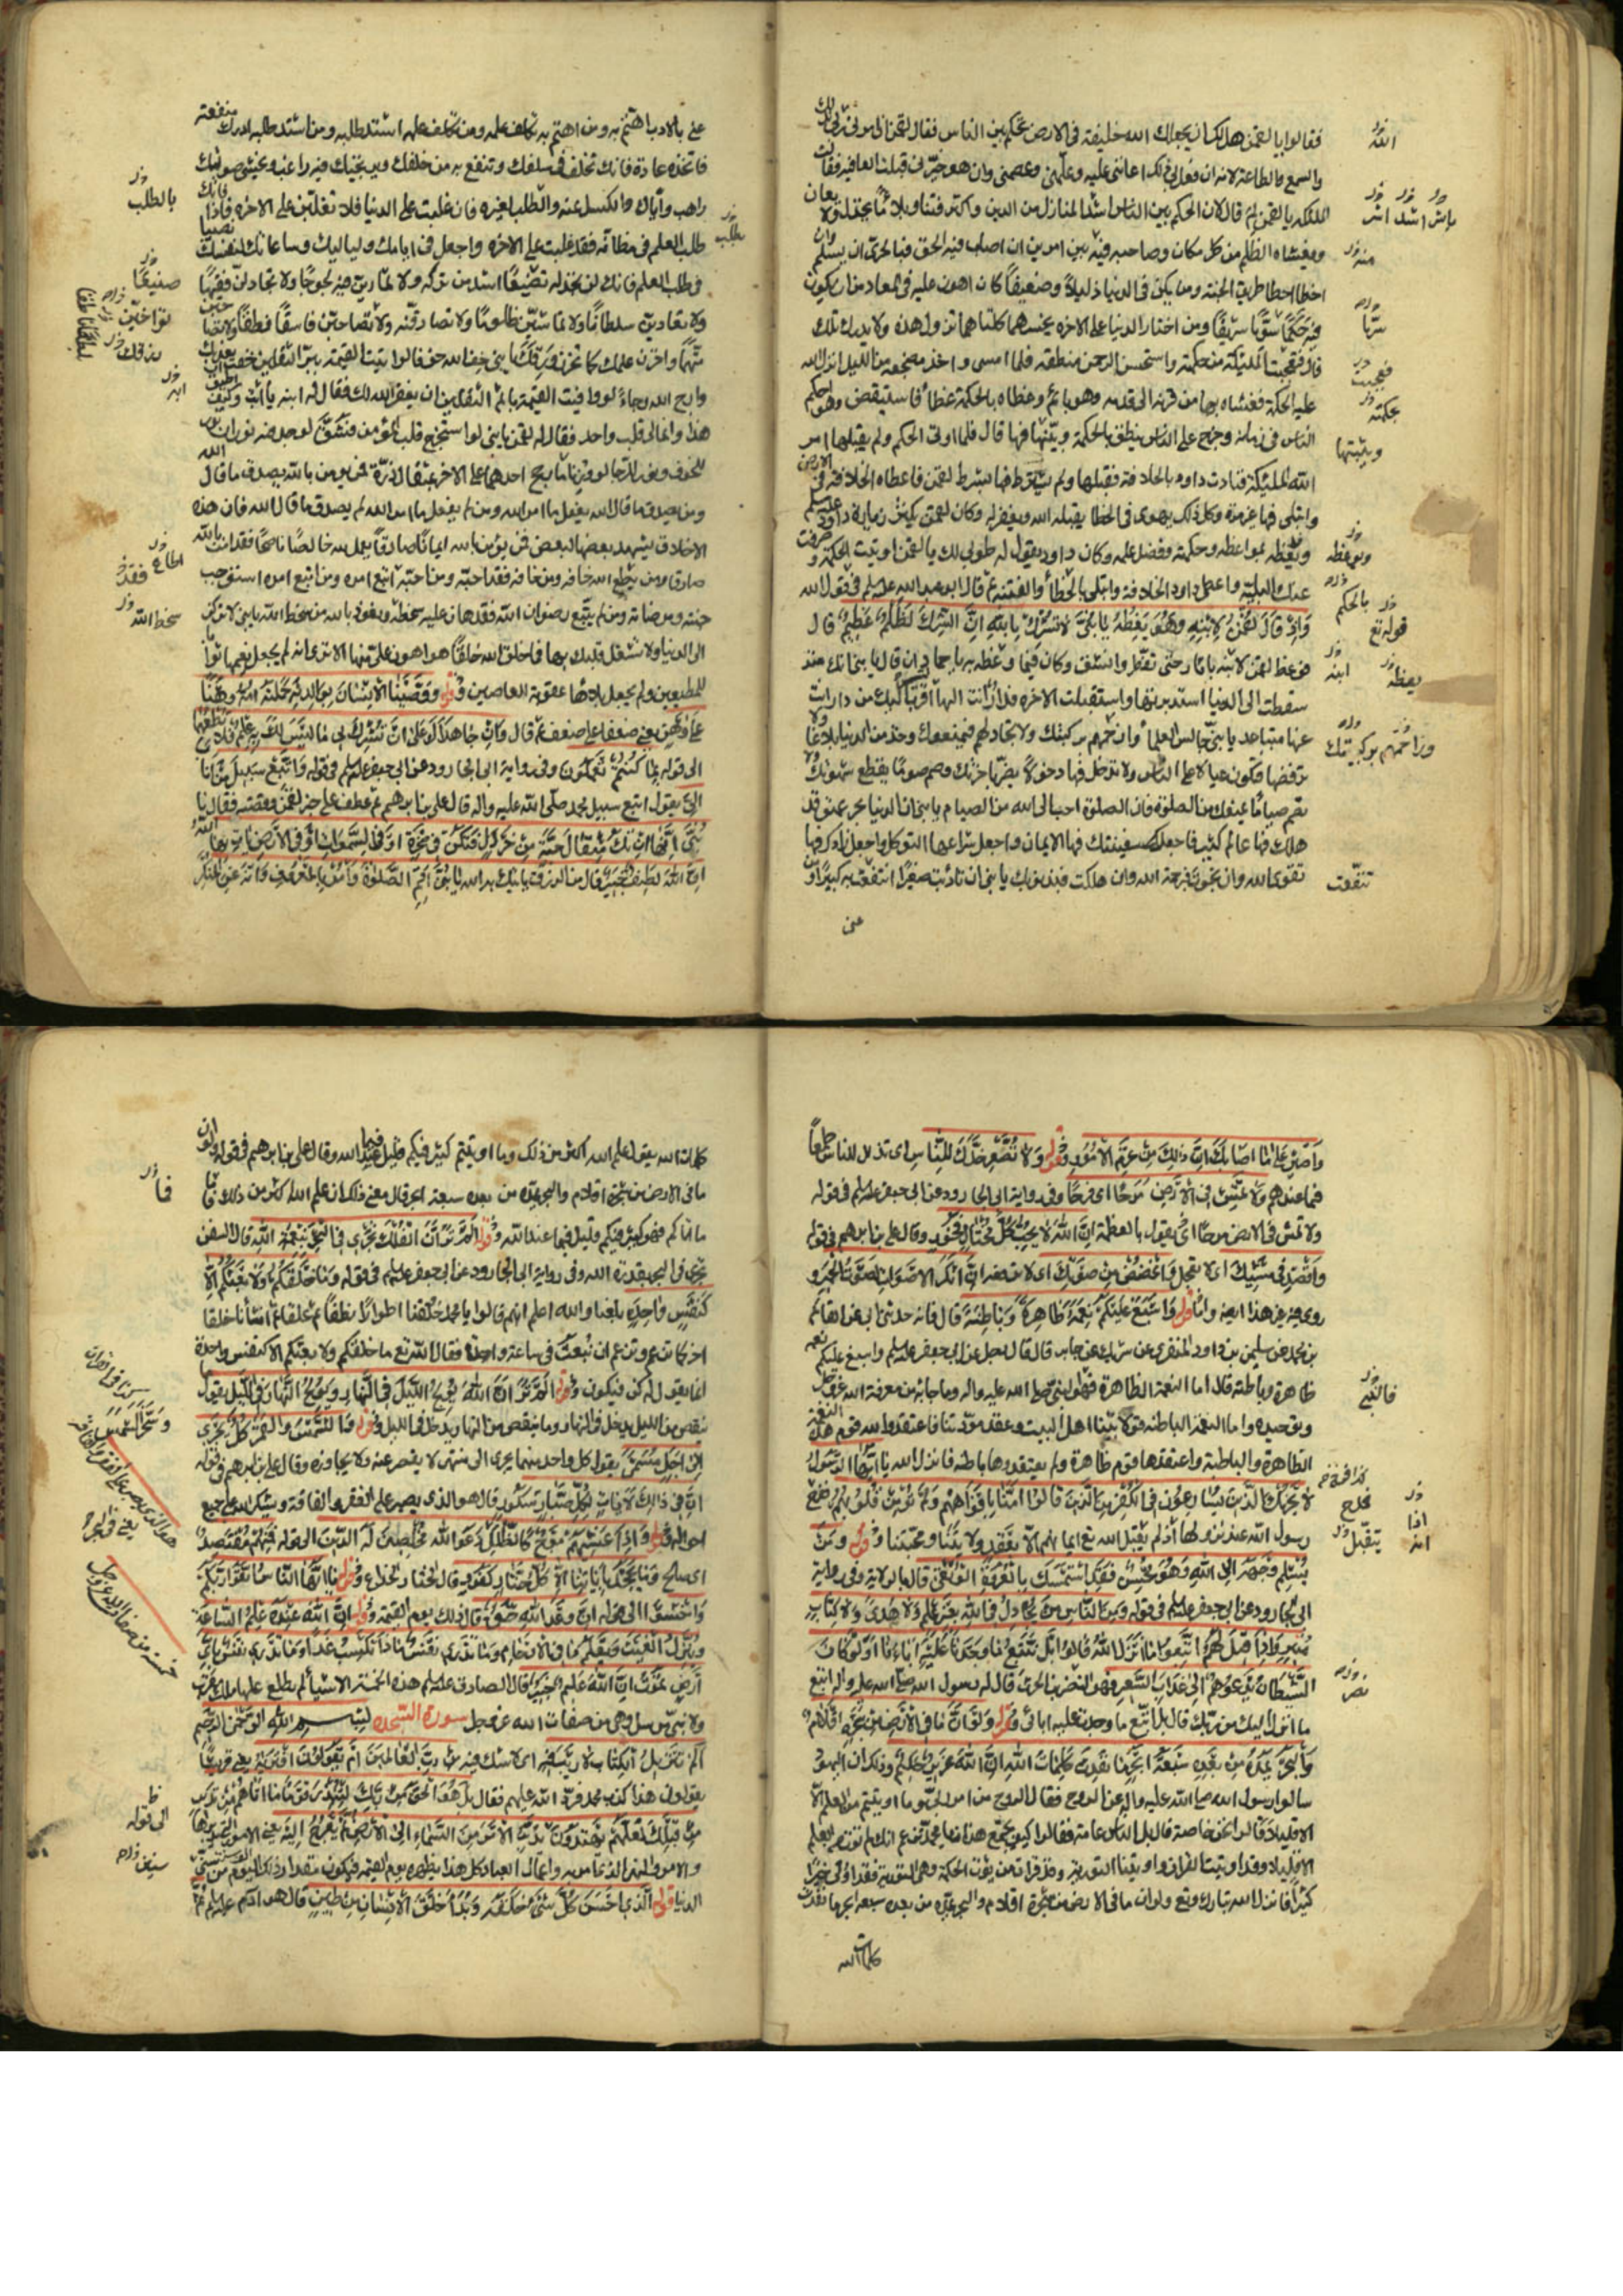 فقالوا يا لقمن هل لك ان يجعلك الله خليفة في الارض تحكم بين الناس فقال لقمن ان امرني ربي بذلك
والسمع والطاعة لانه ان فعل بي ذلك اعانني عليه وعلمني وعصمني وان هو خيرني قبلت العافية فقالت
الملئكة يا لقمن لم قال لان الحكم بين الناس اشد المنازل من الدين واكثر فتنا وبلاء ما يخذل ولا يعان
ويغشاه الظلم من كل مكان وصاحبه فيه بين امرين ان اصاب فيه الحق فبالحري ان يسلم وان
اخطا اخطا طريق الجنة ومن يكن في الدنيا ذليلا وضعيفا كان اهون عليه في المعاد من ان يكون
فيه حكما سريا شريفا ومن اختار الدنيا على الاخرة يخسرهما كلتاهما تزول هذه ولا يدرك تلك
قال فتعجبت الملئكة من حكمته واستحسن الرحمن منطقه فلما امسى واخذ مضجعه من الليل انزل الله
عليه الحكمة فغشاه بها من قرنه الى قدمه وهو نائم وغطاه بالحكمة غطاء فاستيقظ وهو احكم
الناس في زمانه وخرج على الناس ينطق بالحكمة ويبينها فيها قال فلما اوتي الحكم ولم يقبلها امر
الله الملئكة فنادت داود بالخلافة فقبلها ولم يشترط فيها بشرط لقمن فاعطاه الخلافة في الارض
وابتلي فيها غير مرة وكل ذلك يهوي في الخطا يقيله الله ويغفر له وكان لقمن يكثر زيارة داود عليه السلم
ويعظه بمواعظه وحكمته وفضل علمه وكان داود يقول له طوبى لك يا لقمن اوتيت الحكمة وصرفت
عنك البلية واعطي داود الخلافة وابتلي بالخطأ والفتنة ثم قال ابو عبد الله عليه السلم في قول الله
وَاِذْ قَالَ لُقْمٰنُ لِابْنِهِ وَهُوَ يَعِظُهُ يَا بُنَيَّ لَا تُشْرِكْ بِاللهِ اِنَّ الشِّرْكَ لَظُلْمٌ عَظِيمٌ قال
فوعظ لقمن لابنه باثار حتى تفطر وانشق وكان فيما وعظه به يا حماد ان قال يا بني انك منذ
سقطت الى الدنيا استدبرتها واستقبلت الاخرة فدار انت اليها اقرب اليك من دار انت
عنها متباعد يا بني جالس العلماء وازحمهم بركبتيك ولا تجادلهم فيمنعوك وخذ من الدنيا بلاغا ولا
ترفضها فتكون عيالا على الناس ولا تدخل فيها دخولا يضر باخرتك وصم صوما يقطع شهوتك ولا
تصم صياما يمنعك من الصلوة فان الصلوة احب الى الله من الصيام يا بني ان الدنيا بحر عميق قد
هلك فيها عالم كثير فاجعل سفينتك فيها الايمان واجعل شراعها التوكل واجعل زادك فيها
تقوى الله وان نجوت فبرحمة الله وان هلكت فبذنوبك يا بني ان تادبت صغيرا انتفعت به كبيرا ومن
عنى
الله
باشر اشد اشر
منه
سريا
فعجبت
بحكمته
ويثبتها
وبموعظه
بالحكم
قوله تع
يعظه ابنه
وزاحمهم بركبتيك
تنفعت
عنى بالادب اهتم به ومن اهتم به تكلف علمه ومن تكلف علمه اشتد طلبه ومن اشتد طلبه ادرك منفعته
فاتخذه عادة فانك تخلف في سلفك وتنفع به من خلفك ويرتجيك فيه راغب ويخشى صولتك
راهب واياك والكسل عنه والطلب لغيره فان غلبت على الدنيا فلا تغلبن على الاخرة فاذا فاتك
طلب العلم في مظانه فقد غلبت على الاخرة واجعل في ايامك ولياليك وساعاتك لنفسك نصيبا
في طلب العلم فانك لن تجد له تضييعا اشد من تركه ولا تمارين فيه لجوجا ولا تجادلن فقيها
ولا تعادين سلطانا ولا تماشين ظلوما ولا تصادقنه ولا تصاحبن فاسقا نطفا ولا تصاحبن
متهما واخزن علمك كما تخزن ورقك يا بني خف الله خوفا لو اتيت القيمة ببر الثقلين خفت ان يعذبك
وارج الله رجاء لو وافيت القيمة باثم الثقلين ان يغفر الله لك فقال له ابنه يا ابت وكيف اطيق
هذا وانما لي قلب واحد فقال له لقمن يا بني لو استخرج قلب المؤمن فشق لوجد فيه نوران نور
للخوف ونور للرجا لو وزنا ما رجح احدهما على الاخر بمثقال ذرة فمن يؤمن بالله يصدق ما قال الله
ومن يصدق ما قال الله يفعل ما امر الله ومن لم يفعل ما امر الله لم يصدق ما قال الله فان هذه
الاخلاق يشهد بعضها لبعض فمن يؤمن بالله ايمانا صادقا يعمل لله خالصا ناصحا فقد امن بالله
صادقا ومن يطع الله خافه ومن خافه فقد احبه ومن احبه اتبع امره ومن اتبع امره استوجب
جنته ومرضاته ومن لم يتبع رضوان الله فقد هان عليه سخطه ونعوذ بالله من سخط الله يا بني لا تركن
الى الدنيا ولا تشغل قلبك بها فما خلق الله خلقا هو اهون عليه منها الا ترى انه لم يجعل نعيمها ثوابا
للمطيعين ولم يجعل بلاءها عقوبة للعاصين وقوله وَوَصَّيْنَا الْاِنْسَانَ بِوَالِدَيْهِ حَمَلَتْهُ اُمُّهُ وَهْنًا
عَلَى وَهْنٍ يعني ضعفا على ضعف ثم قال وَاِنْ جَاهَدَاكَ عَلَى اَنْ تُشْرِكَ بِي مَا لَيْسَ لَكَ بِهِ عِلْمٌ فَلَا تُطِعْهُمَا
الى قوله بِمَا كُنْتُمْ تَعْمَلُونَ وفي رواية ابي الجارود عن ابي جعفر عليه السلم في قوله وَاتَّبِعْ سَبِيلَ مَنْ اَنَابَ
اِلَيَّ يقول اتبع سبيل محمد صلى الله عليه واله قال علي بن ابرهيم ثم عطف على خبر لقمن وقصته فقال يَا
بُنَيَّ اِنَّهَا اِنْ تَكُ مِثْقَالَ حَبَّةٍ مِنْ خَرْدَلٍ فَتَكُنْ فِي صَخْرَةٍ اَوْ فِي السَّمٰوَاتِ اَوْ فِي الْاَرْضِ يَاْتِ بِهَا اللهُ
اِنَّ اللهَ لَطِيفٌ خَبِيرٌ قال من الرزق ياتيك به الله يَا بُنَيَّ اَقِمِ الصَّلٰوةَ وَاْمُرْ بِالْمَعْرُوفِ وَانْهَ عَنِ الْمُنْكَرِ
بالطلب
يطلب
ضيعا
تواخين
ورقك
ابه
اطاع فقد
سخط الله
وَاصْبِرْ عَلَى مَا اَصَابَكَ اِنَّ ذٰلِكَ مِنْ عَزْمِ الْاُمُورِ وقوله وَلَا تُصَعِّرْ خَدَّكَ لِلنَّاسِ اى تذل للناس طمعا
فيما عندهم وَلَا تَمْشِ فِي الْاَرْضِ مَرَحًا اى فرحا وفي رواية ابي الجارود عن ابي جعفر عليه السلم في قوله
ولا تمش في الارض مرحا اى يقول بالعظمة اِنَّ اللهَ لَا يُحِبُّ كُلَّ مُخْتَالٍ فَخُورٍ وقال علي بن ابرهيم في قوله
وَاقْصِدْ فِي مَشْيِكَ اى لا تعجل وَاغْضُضْ مِنْ صَوْتِكَ اى لا ترفعه اِنَّ اَنْكَرَ الْاَصْوَاتِ لَصَوْتُ الْحَمِيرِ و
روي فيه غير هذا ايضا واما قوله وَاَسْبَغَ عَلَيْكُمْ نِعَمَهُ ظَاهِرَةً وَبَاطِنَةً قال فانه حدثني ابي عن القاسم
بن محمد عن سليمن بن داود المنقري عن شريك عن جابر قال قال رجل عند ابي جعفر عليه السلم واسبغ عليكم نعمه
ظاهرة وباطنة قال اما النعمة الظاهرة فهو النبي صلى الله عليه واله وما جاء به من معرفة الله عز وجل
وتوحيده واما النعمة الباطنة فولايتنا اهل البيت وعقد مودتنا فاعتقد والله قوم هذه النعمة
الظاهرة والباطنة واعتقدها قوم ظاهرة ولم يعتقدوها باطنة فانزل الله يَا اَيُّهَا الرَّسُولُ
لَا يَحْزُنْكَ الَّذِينَ يُسَارِعُونَ فِي الْكُفْرِ مِنَ الَّذِينَ قَالُوا اٰمَنَّا بِاَفْوَاهِهِمْ وَلَمْ تُؤْمِنْ قُلُوبُهُمْ ففرح
رسول الله عند نزولها اذ لم يقبل الله تع ايمانهم الا بعقد ولايتنا ومحبتنا وقوله وَمَنْ
يُسْلِمْ وَجْهَهُ اِلَى اللهِ وَهُوَ مُحْسِنٌ فَقَدِ اسْتَمْسَكَ بِالْعُرْوَةِ الْوُثْقَى قال بالولاية وفي رواية
ابي الجارود عن ابي جعفر عليه السلم في قوله وَمِنَ النَّاسِ مَنْ يُجَادِلُ فِي اللهِ بِغَيْرِ عِلْمٍ وَلَا هُدًى وَلَا كِتَابٍ
مُنِيرٍ وَاِذَا قِيلَ لَهُمُ اتَّبِعُوا مَا اَنْزَلَ اللهُ قَالُوا بَلْ نَتَّبِعُ مَا وَجَدْنَا عَلَيْهِ اٰبَاءَنَا اَوَلَوْ كَانَ
الشَّيْطَانُ يَدْعُوهُمْ اِلَى عَذَابِ السَّعِيرِ فهو النضر بن الحرث قال له رسول الله صلى الله عليه واله اتبع
ما انزل اليك من ربك قال بل اتبع ما وجدت عليه ابائي وقوله وَلَوْ اَنَّ مَا فِي الْاَرْضِ مِنْ شَجَرَةٍ اَقْلَامٌ
وَالْبَحْرُ يَمُدُّهُ مِنْ بَعْدِهِ سَبْعَةُ اَبْحُرٍ مَا نَفِدَتْ كَلِمَاتُ اللهِ اِنَّ اللهَ عَزِيزٌ حَكِيمٌ وذلك ان اليهود
سالوا رسول الله صلى الله عليه واله عن الروح فقال الروح من امر ربي وما اوتيتم من العلم الا
الا قليلا قالوا نحن خاصة قال بل الناس عامة فقالوا كيف يجتمع هذان يا محمد تزعم انك لم تؤت من العلم
الا قليلا وقد اوتيت القران واوتينا التورية وقد قرات من يؤت الحكمة وهي التورية فقد اوتي خيرا
كثيرا فانزل الله تبارك وتع ولو ان ما في الارض من شجرة اقلام والبحر يمده من بعده سبعة ابحر ما نفدت
كلمات الله
فالنبي
ففرح
اذا
يتقبل
نضر
كلمات الله يقول علم الله اكثر من ذلك وما اوتيتم كثير فيكم قليل فيما عند الله وقال علي بن ابرهيم في قوله ولو ان
ما في الارض من شجرة اقلام والبحر يمده من بعده سبعة ابحر قال معنى ذلك ان علم الله اكثر من ذلك واما
ما اتاكم فهو كثير فيكم وقليل فيما عند الله وقوله اَلَمْ تَرَ اَنَّ الْفُلْكَ تَجْرِي فِي الْبَحْرِ بِنِعْمَةِ اللهِ قال السفن
تجري في البحر بقدرة الله وفي رواية ابي الجارود عن ابي جعفر عليه السلم في قوله وَمَا خَلْقُكُمْ وَلَا بَعْثُكُمْ اِلَّا
كَنَفْسٍ وَاحِدَةٍ بلغنا والله اعلم انهم قالوا يا محمد خلقنا اطوارا نطفا ثم علقا ثم انشانا خلقا
اخر كما تزعم وتزعم ان نبعث في ساعة واحدة فقال الله تع ما خلقكم ولا بعثكم الا كنفس واحدة
انما يقول له كن فيكون وقوله اَلَمْ تَرَ اَنَّ اللهَ يُولِجُ اللَّيْلَ فِي النَّهَارِ وَيُولِجُ النَّهَارَ فِي اللَّيْلِ يقول
ينقص من الليل يدخل في النهار وما ينقص من النهار يدخل في الليل وقوله وَالشَّمْسَ وَالْقَمَرَ كُلٌّ يَجْرِي
اِلَى اَجَلٍ مُسَمًّى يقول كل واحد منهما يجري الى منتهى لا يقصر عنه ولا يجاوزه وقال علي بن ابرهيم في قوله
اِنَّ فِي ذٰلِكَ لَاٰيَاتٍ لِكُلِّ صَبَّارٍ شَكُورٍ قال هو الذي يصبر على الفقر والفاقة ويشكر الله على جميع
احواله وقوله وَاِذَا غَشِيَهُمْ مَوْجٌ كَالظُّلَلِ دَعَوُا اللهَ مُخْلِصِينَ لَهُ الدِّينَ الى قوله فَمِنْهُمْ مُقْتَصِدٌ
اى صالح وَمَا يَجْحَدُ بِاٰيَاتِنَا اِلَّا كُلُّ خَتَّارٍ كَفُورٍ قال الختار الخداع وقوله يَا اَيُّهَا النَّاسُ اتَّقُوا رَبَّكُمْ
وَاخْشَوْا الى قوله اِنَّ وَعْدَ اللهِ حَقٌّ قال ذلك يوم القيمة وقوله اِنَّ اللهَ عِنْدَهُ عِلْمُ السَّاعَةِ
وَيُنَزِّلُ الْغَيْثَ وَيَعْلَمُ مَا فِي الْاَرْحَامِ وَمَا تَدْرِي نَفْسٌ مَاذَا تَكْسِبُ غَدًا وَمَا تَدْرِي نَفْسٌ بِاَيِّ
اَرْضٍ تَمُوتُ اِنَّ اللهَ عَلِيمٌ خَبِيرٌ قال الصادق عليه السلم هذه الخمسة الاشياء لم يطلع عليها ملك مقرب
ولا نبي مرسل وهي من صفات الله عز وجل سورة السجدة بسم الله الرحمن الرحيم
الم تَنْزِيلُ الْكِتَابِ لَا رَيْبَ فِيهِ اى لا شك فيه مِنْ رَبِّ الْعَالَمِينَ اَمْ يَقُولُونَ افْتَرَاهُ يعني قريشا
يقولون هذا كذب محمد فرد الله عليهم فقال بَلْ هُوَ الْحَقُّ مِنْ رَبِّكَ لِتُنْذِرَ قَوْمًا مَا اَتَاهُمْ مِنْ نَذِيرٍ
مِنْ قَبْلِكَ لَعَلَّهُمْ يَهْتَدُونَ يُدَبِّرُ الْاَمْرَ مِنَ السَّمَاءِ اِلَى الْاَرْضِ ثُمَّ يَعْرُجُ اِلَيْهِ يعني الامور التي يدبرها
والامر والنهي الذي امر به واعمال العباد كل هذا يظهره يوم القيمة فيكون مقدار ذلك اليوم من سني
الدنيا وقوله اَلَّذِي اَحْسَنَ كُلَّ شَيْءٍ خَلَقَهُ وَبَدَاَ خَلْقَ الْاِنْسَانِ مِنْ طِينٍ قال هو ادم عليه السلم ثم
فا
وسخر الشمس
هو الذي يصبر على الفقر والفاقة
يعني في البحر
خمسة من صفات الله عز وجل
الى قوله